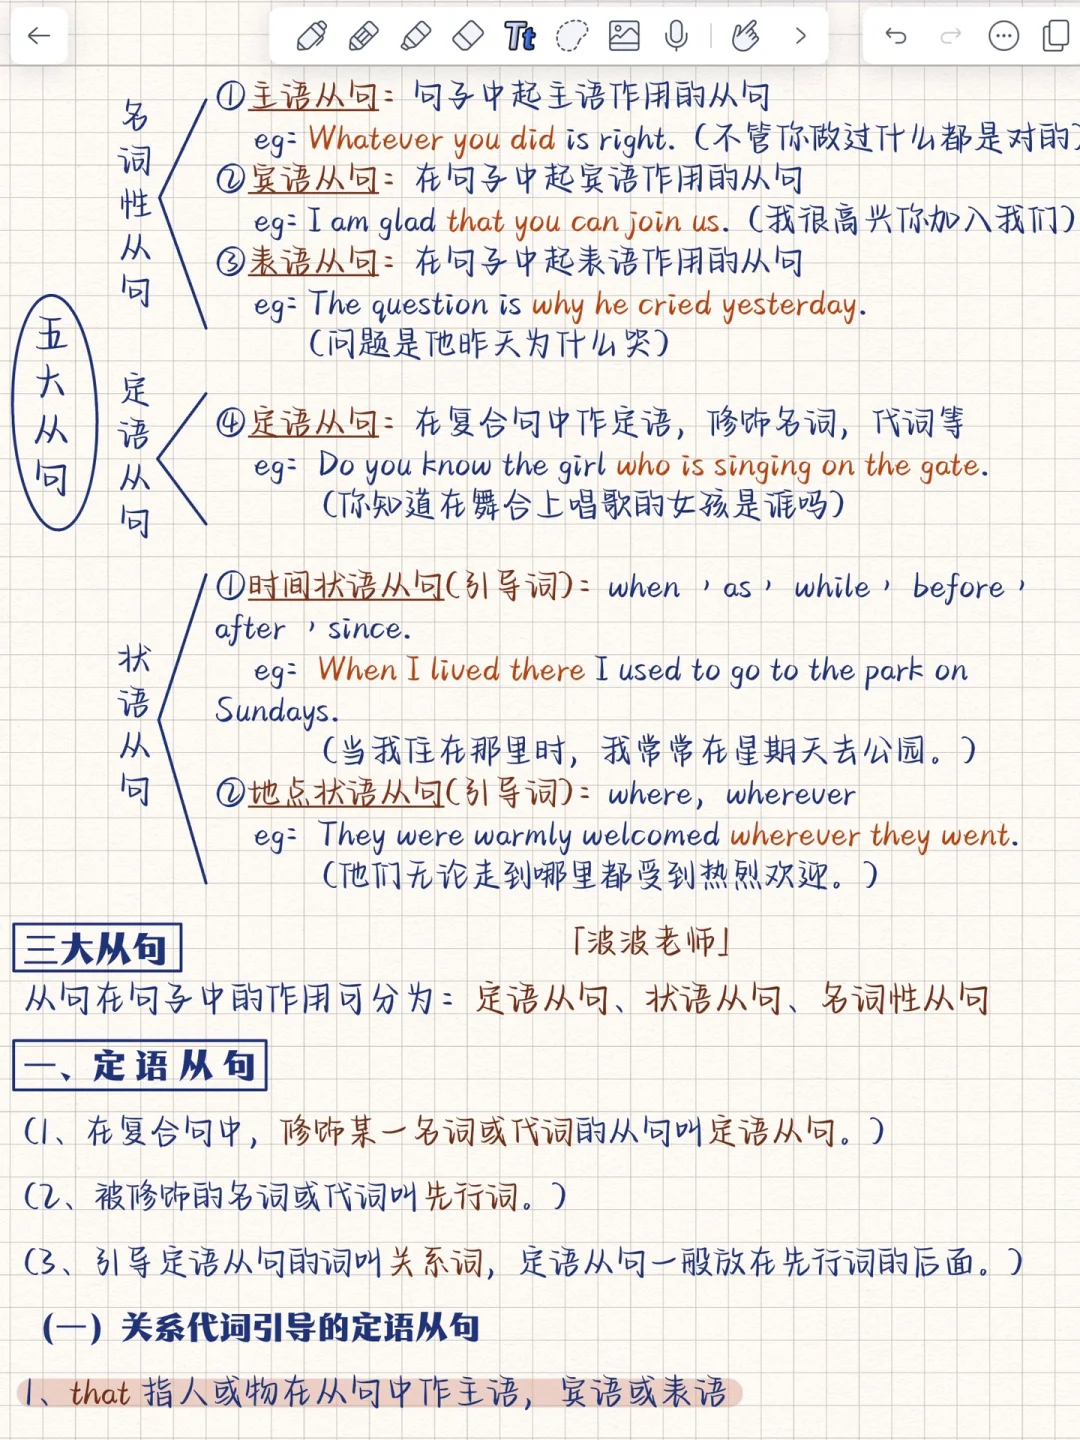 Tt
名词性从句
①主语从句：句子中起主语作用的从句
eg: Whatever you did is right.（不管你做过什么都是对的）
②宾语从句：在句子中起宾语作用的从句
eg: I am glad that you can join us.（我很高兴你加入我们）
③表语从句：在句子中起表语作用的从句
eg: The question is why he cried yesterday.
（问题是他昨天为什么哭）
五大从句
定语从句
④定语从句：在复合句中作定语，修饰名词，代词等
eg: Do you know the girl who is singing on the gate.
（你知道在舞台上唱歌的女孩是谁吗）
状语从句
①时间状语从句(引导词)：when ，as， while， before，
after ，since.
eg: When I lived there I used to go to the park on
Sundays.
（当我住在那里时，我常常在星期天去公园。）
②地点状语从句(引导词)：where，wherever
eg: They were warmly welcomed wherever they went.
（他们无论走到哪里都受到热烈欢迎。）
三大从句
「波波老师」
从句在句子中的作用可分为：定语从句、状语从句、名词性从句
一、定语从句
（1、在复合句中，修饰某一名词或代词的从句叫定语从句。）
（2、被修饰的名词或代词叫先行词。）
（3、引导定语从句的词叫关系词，定语从句一般放在先行词的后面。）
（一）关系代词引导的定语从句
1、that 指人或物在从句中作主语，宾语或表语